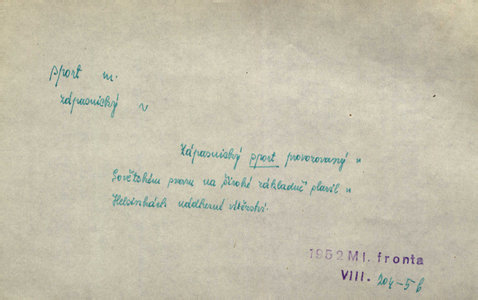 sport m.
zápasnický v
Zápasnický sport provozovaný v
Sovětském svazu na široké základně slavil v
Helsinkách nádherné vítězství.
1952 Ml. fronta
VIII. 204-5 b